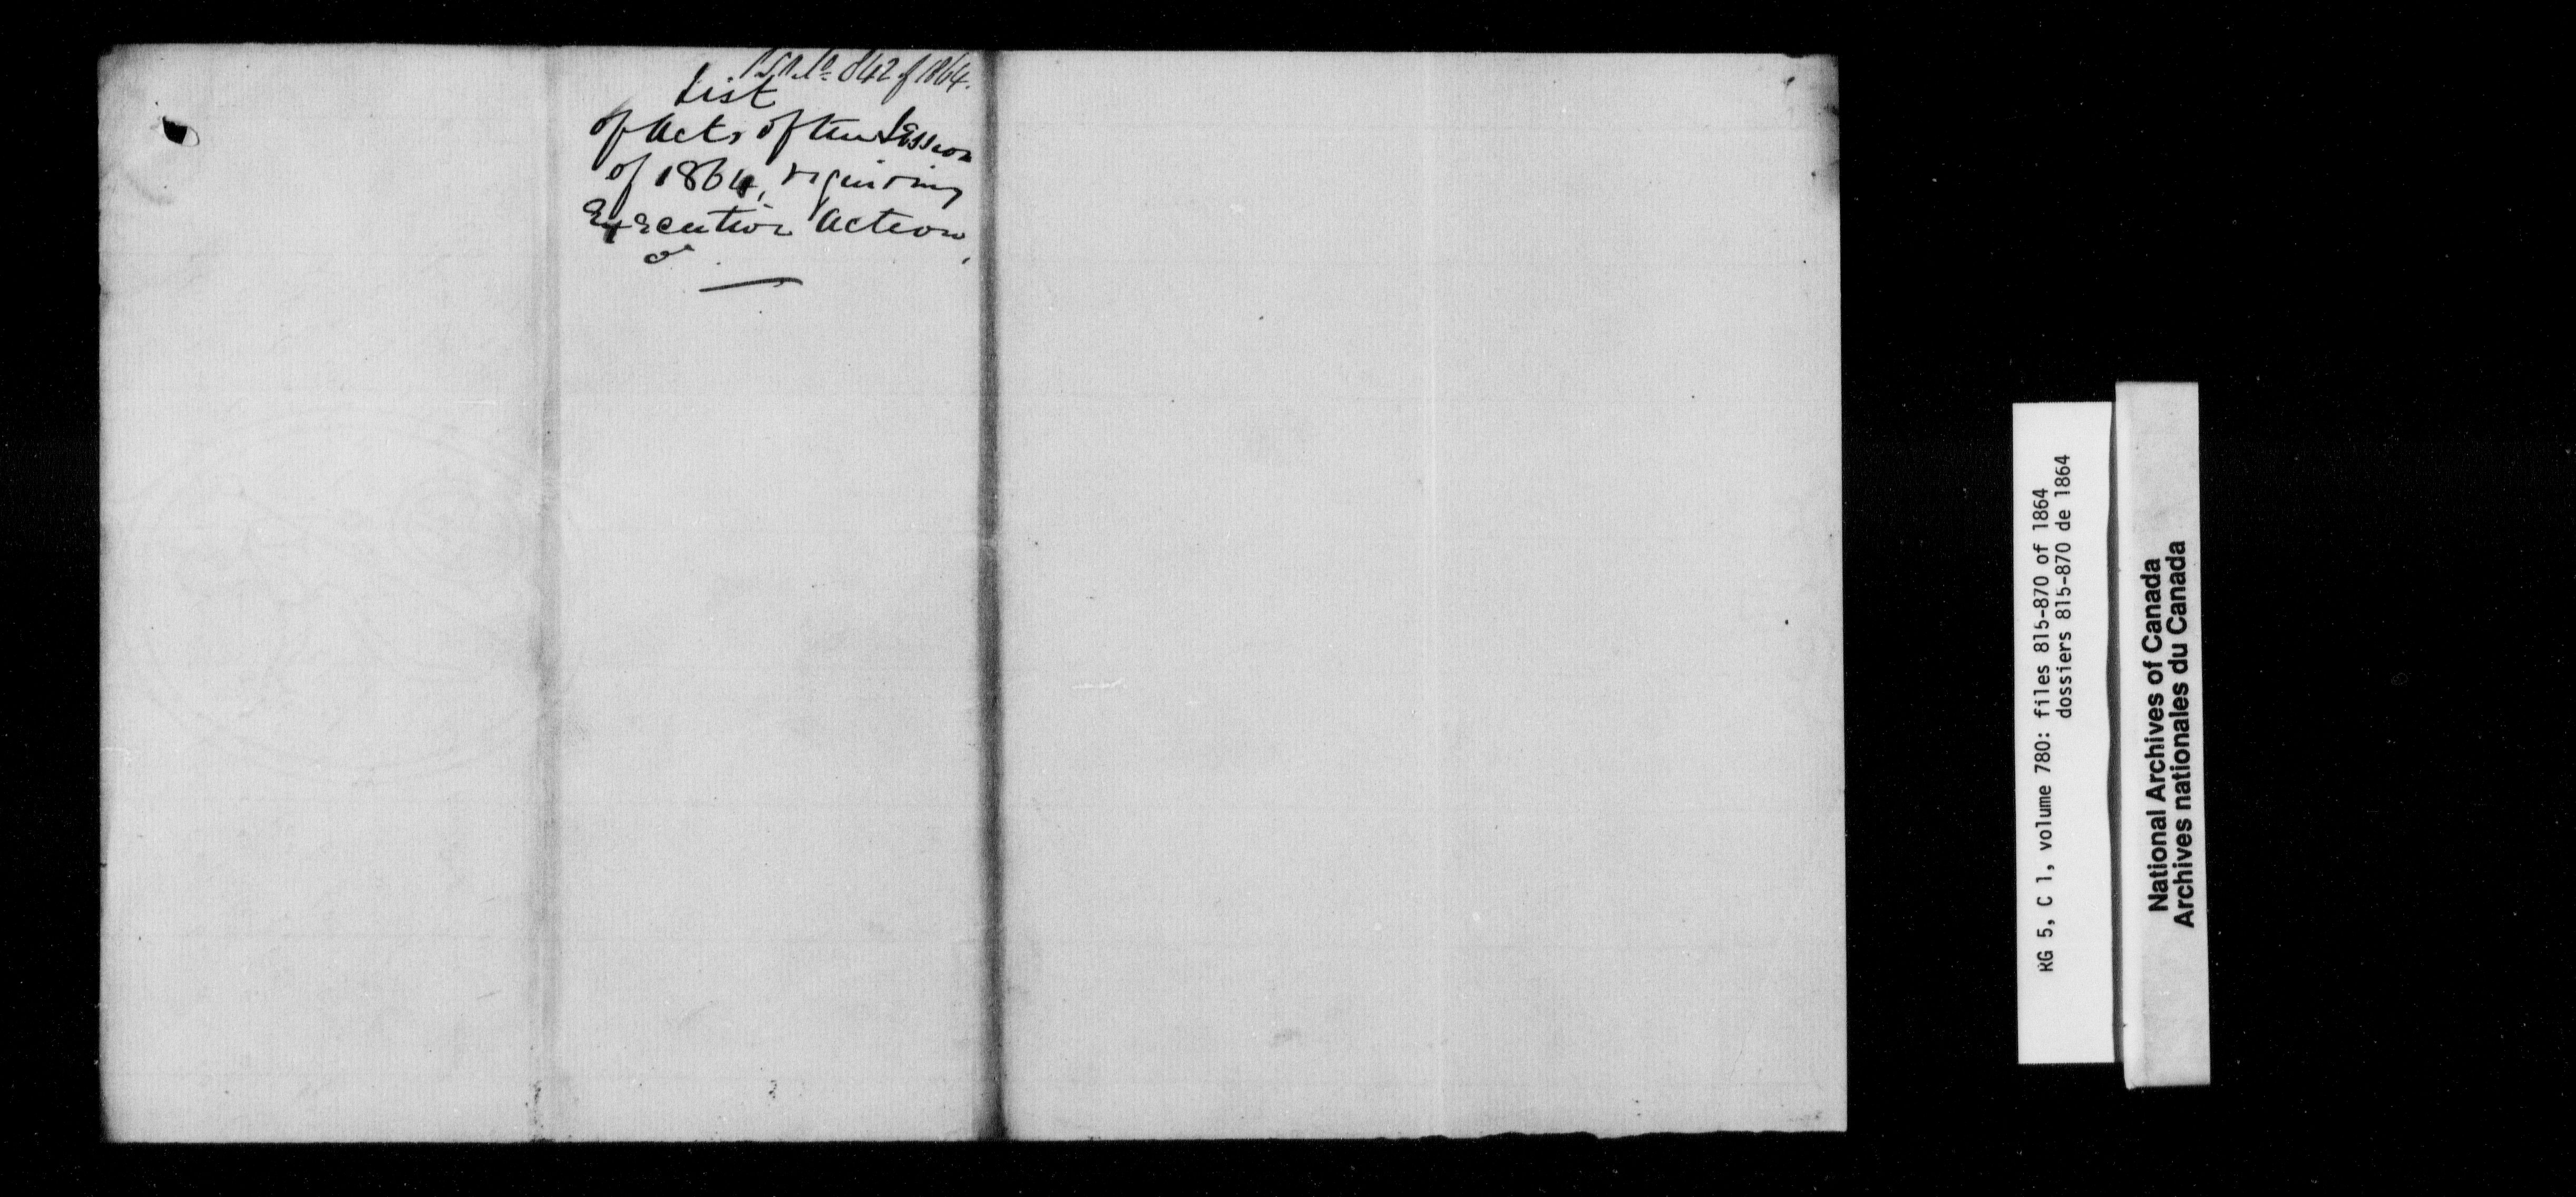 842 of 1864.
List
of Acts of the Session
of 1864, requiring
Executive Action,
RG 5, C 1, volume 780: files 815-870 of 1864
dossiers 815-870 de 1864
National Archives of Canada
Archives nationales du Canada